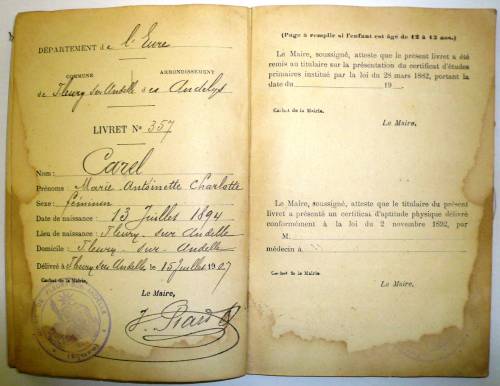 DÉPARTEMENT de l'Eure
COMMUNE ARRONDISSEMENT
de Fleury sur Andelle des Andelys
LIVRET No 357
Nom: Carel
Prénoms: Marie Antoinette Charlotte
Sexe: féminin
Date de naissance: 13 Juillet 1894
Lieu de naissance: Fleury-sur Andelle
Domicile: Fleury-sur-Andelle
Délivré à Fleury sur Andelle le 15 juillet 1907
Cachet de la Mairie.
Le Maire,
(Page à remplir si l'enfant est âgé de 12 à 13 ans.)
Le Maire, soussigné, atteste que le présent livret a été
remis au titulaire sur la présentation du certificat d'études
primaires institué par la loi du 28 mars 1882, portant la
date du 19
Cachet de la Mairie.
Le Maire,
Le Maire, soussigné, atteste que le titulaire du présent
livret a présenté un certificat d'aptitude physique délivré
conformément à la loi du 2 novembre 1892, par
M.
médecin à
Cachet de la Mairie.
Le Maire,